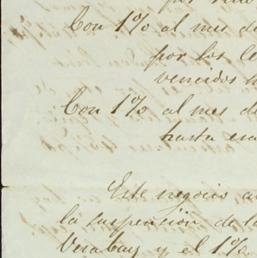 Con 1% al mes de
por los
vencidos
Con 1% al mes de
hasta
Este negocio
la suspension de
y el 1%